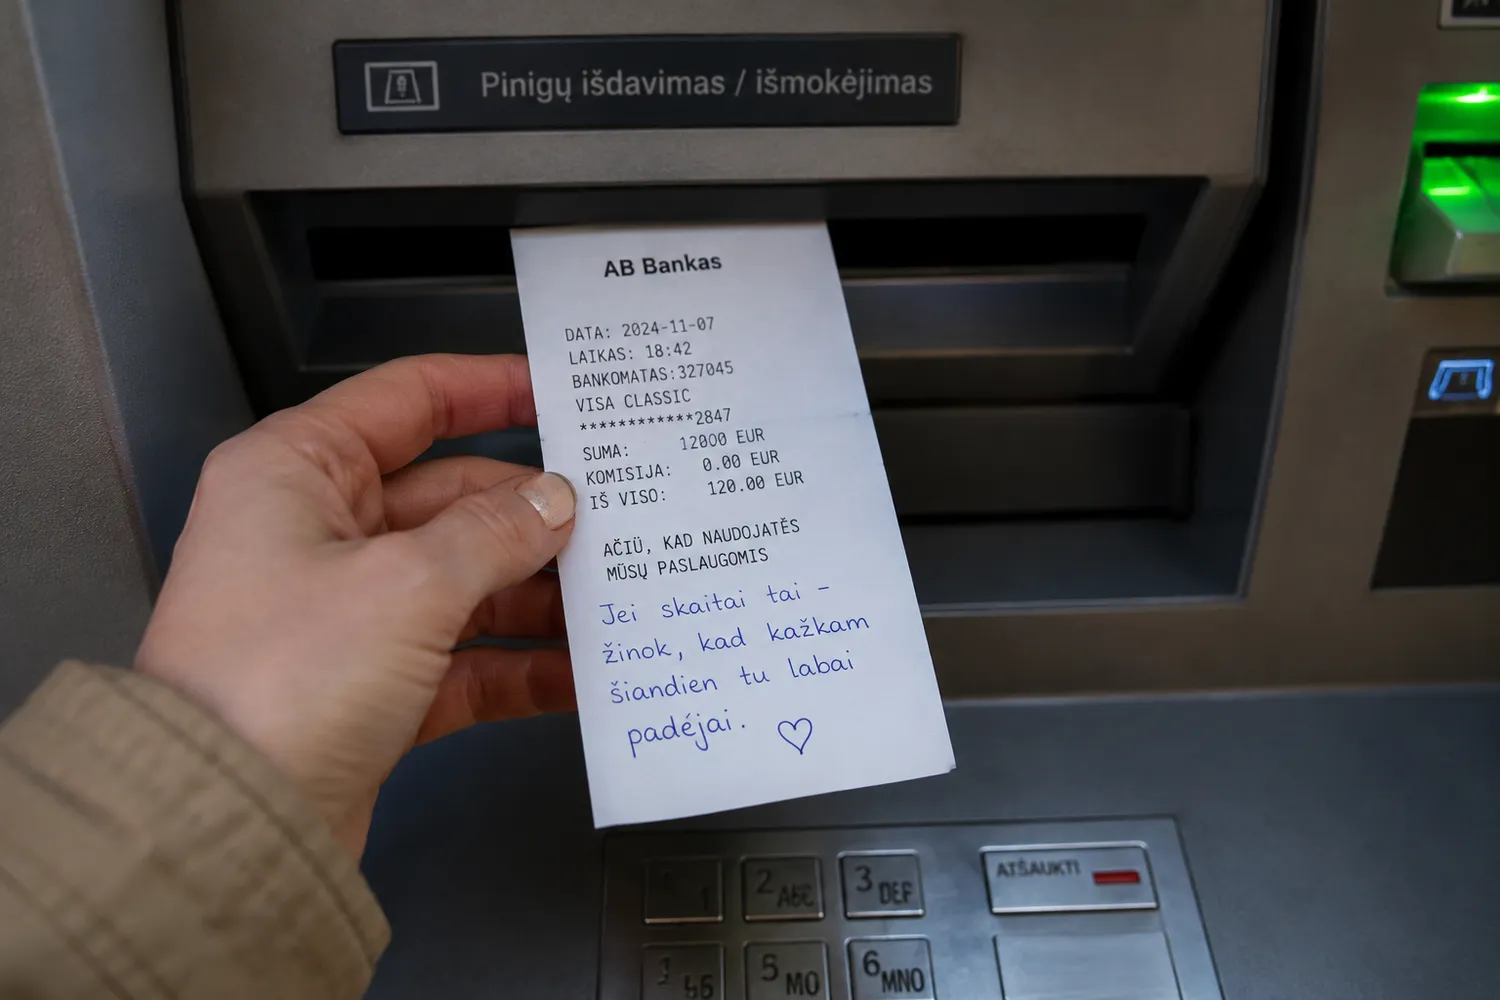 Pinigų išdavimas / išmokėjimas
AB Bankas
DATA: 2024-11-07
LAIKAS: 18:42
BANKOMATAS:327045
VISA CLASSIC
************2847
SUMA: 12000 EUR
KOMISIJA: 0.00 EUR
IŠ VISO: 120.00 EUR
AČIŪ, KAD NAUDOJATĖS
MŪSŲ PASLAUGOMIS
Jei skaitai tai –
žinok, kad kažkam
šiandien tu labai
padėjai. ♡
1 2 ABC 3 DEF ATŠAUKTI
5 MO 6 MNO